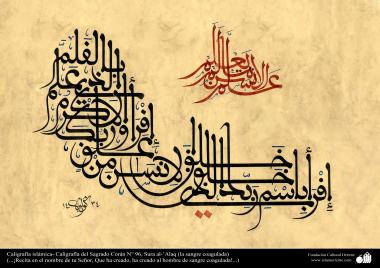 إقرأ باسم ربك الذي خلق
خلق الإنسن من علق
إقرأ وربك الأكرم
الذي علم بالقلم
علم الإنسن ما لم يعلم
Caligrafía islámica- Caligrafía del Sagrado Corán N° 96, Sura al-'Alaq (la sangre coagulada)
(...¡Recita en el nombre de tu Señor, Que ha creado, ha creado al hombre de sangre coagulada!...)
Fundación Cultural Oriente
www.islamoriente.com